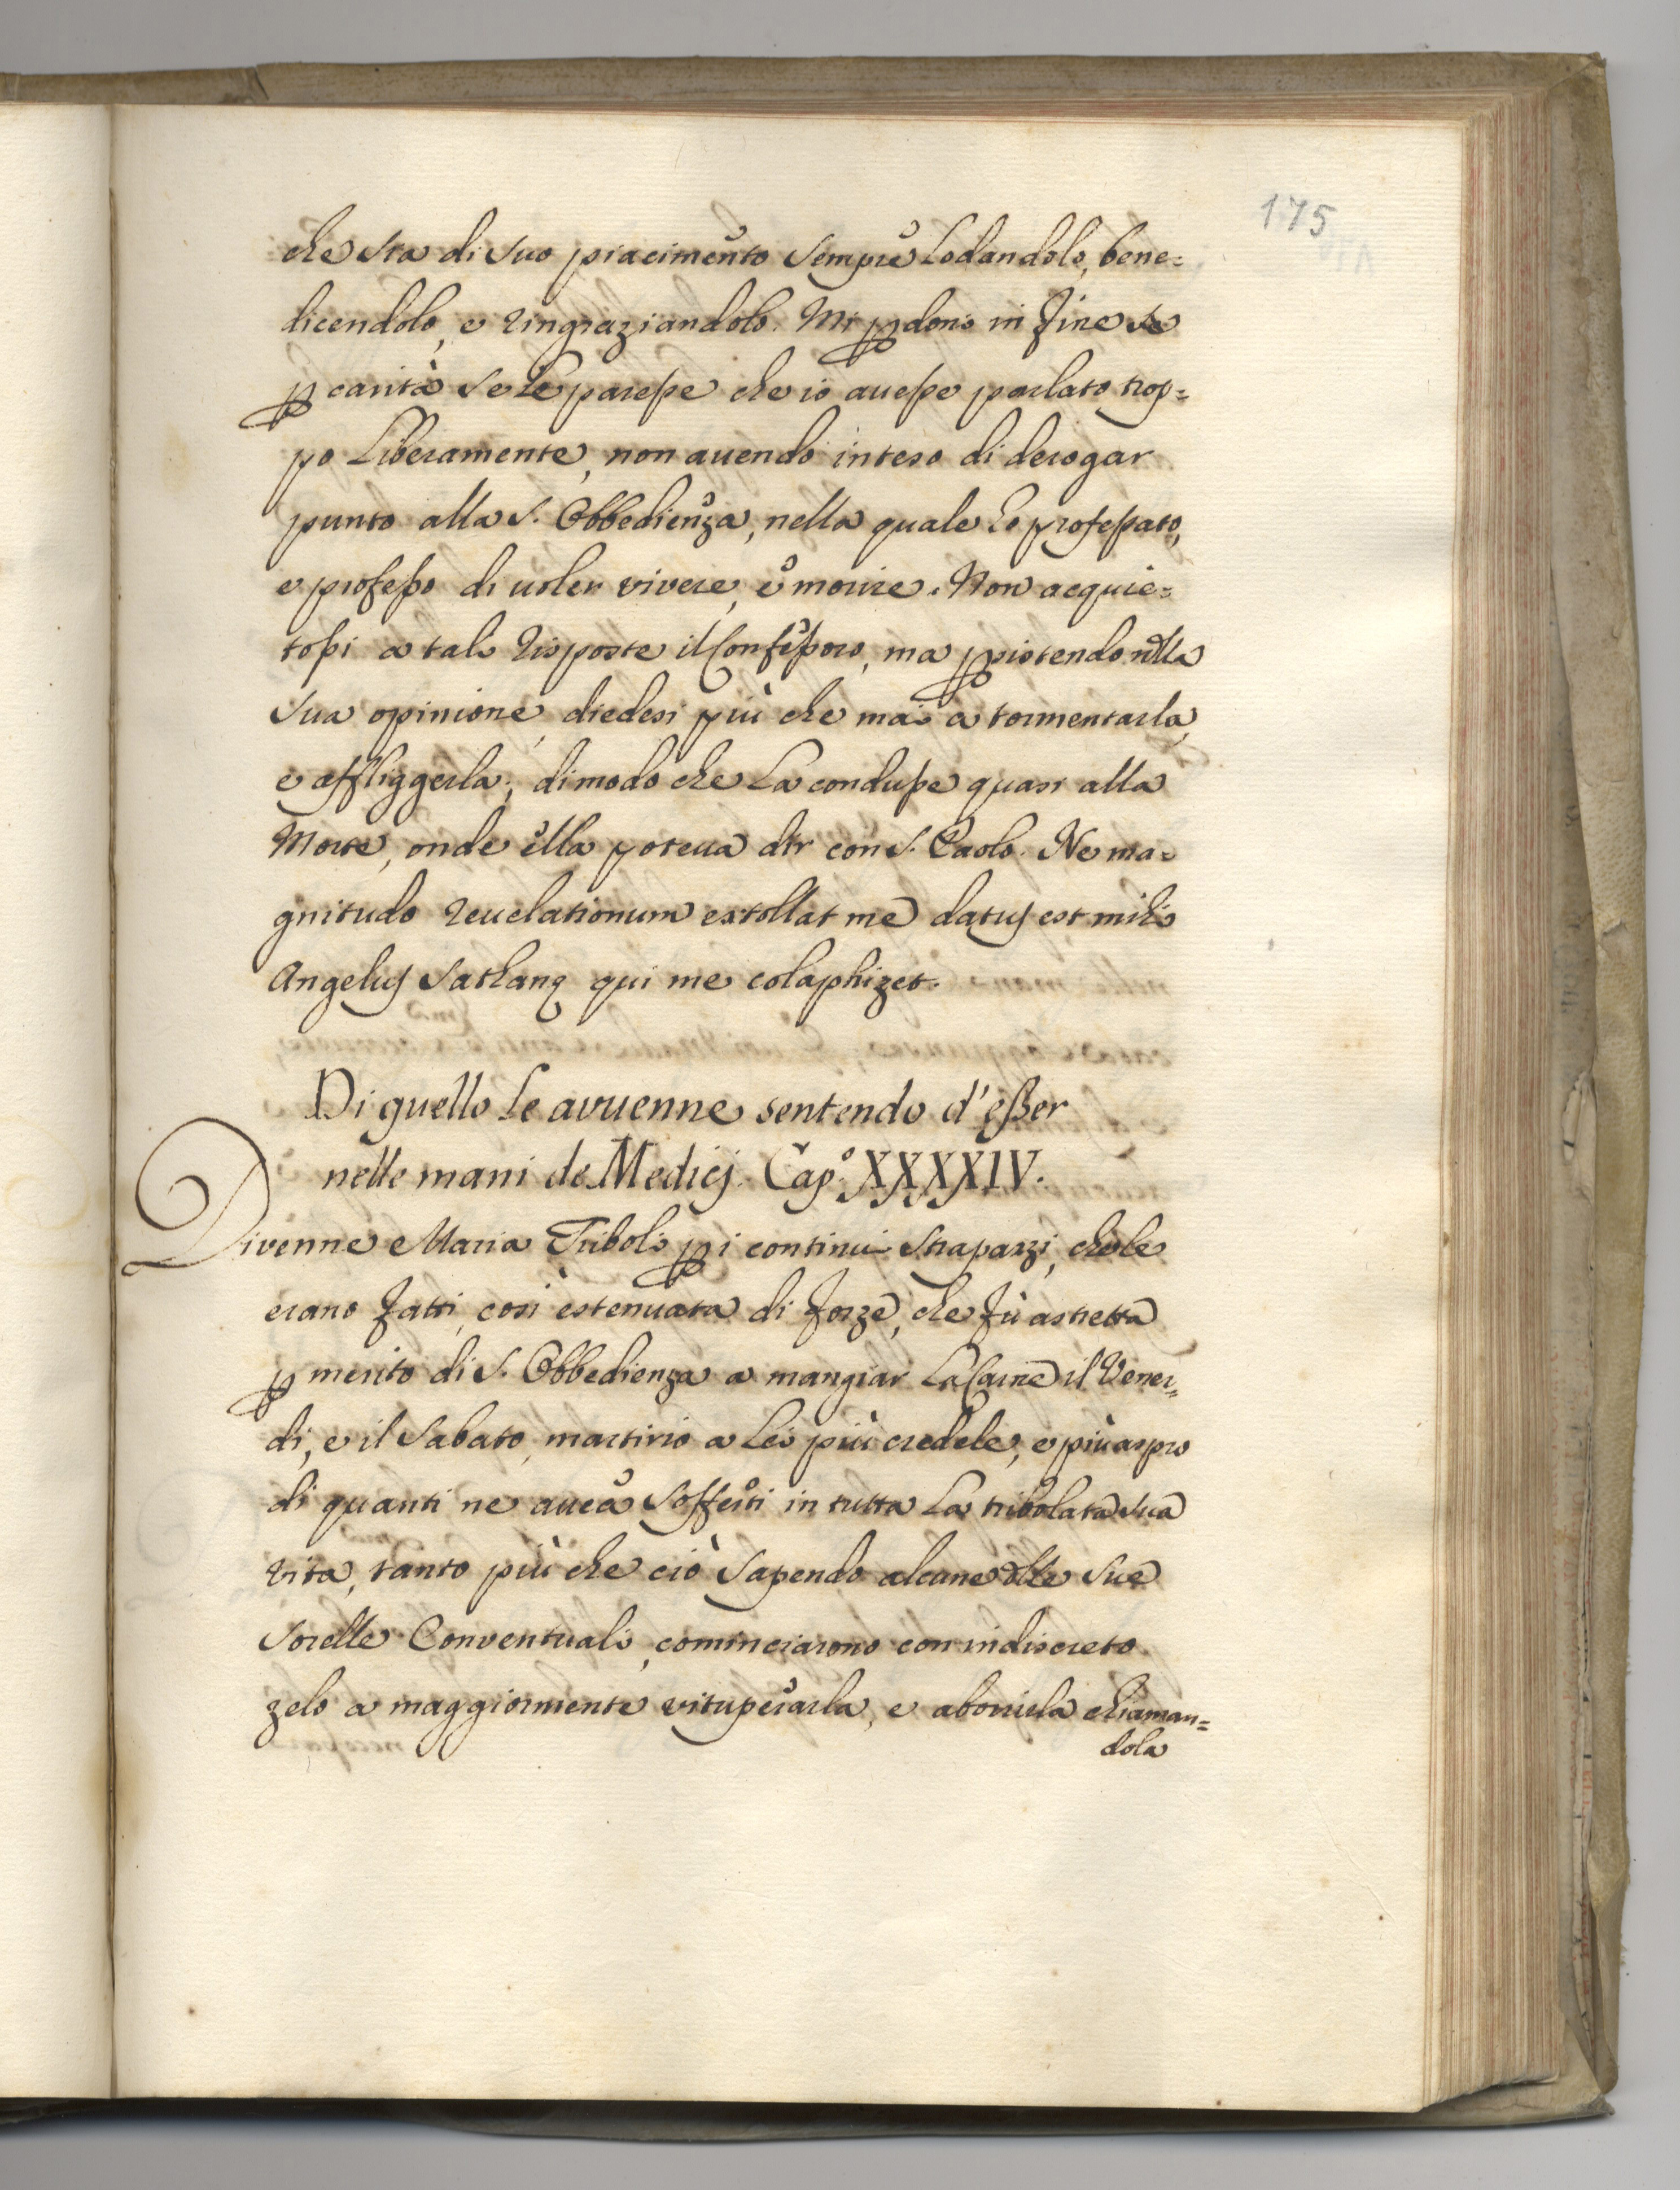 175
che sta di suo piacimento sempre Lodandolo, bene=
dicendolo, e ringraziandolo. Mi ꝑdoni in fine se
ꝑ carità se le paresse che io auesse parlato trop=
po Liberamente, non auendo inteso di derogar
punto alla S. Obbedienza, nella quale ho professato,
e professo di uoler vivere, e morire. Non acquie=
tossi a tali risposte il Confessore, ma ꝑsistendo nlla
sua opinione, diedesi più che mai a tormentarla,
e affliggerla; dimodo che La condusse quasi alla
Morte, onde ella poteua dir con S. Paolo. Ne ma=
gnitudo reuelationum extollat me datus est mihi
Angelus Sathanę qui me colaphizet.
Di quello le avuenne sentendo d'esser
nelle mani de Medicj. Cap.º XXXXIV.
Divenne Maria Triboli ꝑ i continui strapazzi, che le
erano fatti, così estenuata di forze, che fù astretta
ꝑ merito di S. Obbedienza a mangiar La Carne il Vener=
di, e il Sabato, martirio a Lei più credele, e più aspro
di quanti ne auea sofferti in tutta La tribolata sua
vita, tanto più che ciò sapendo alcune dlle sue
Sorelle Conventuali, cominciarono con indiscreto
zelo a maggiormente vituperarla, e aborrirla chiaman=
dola